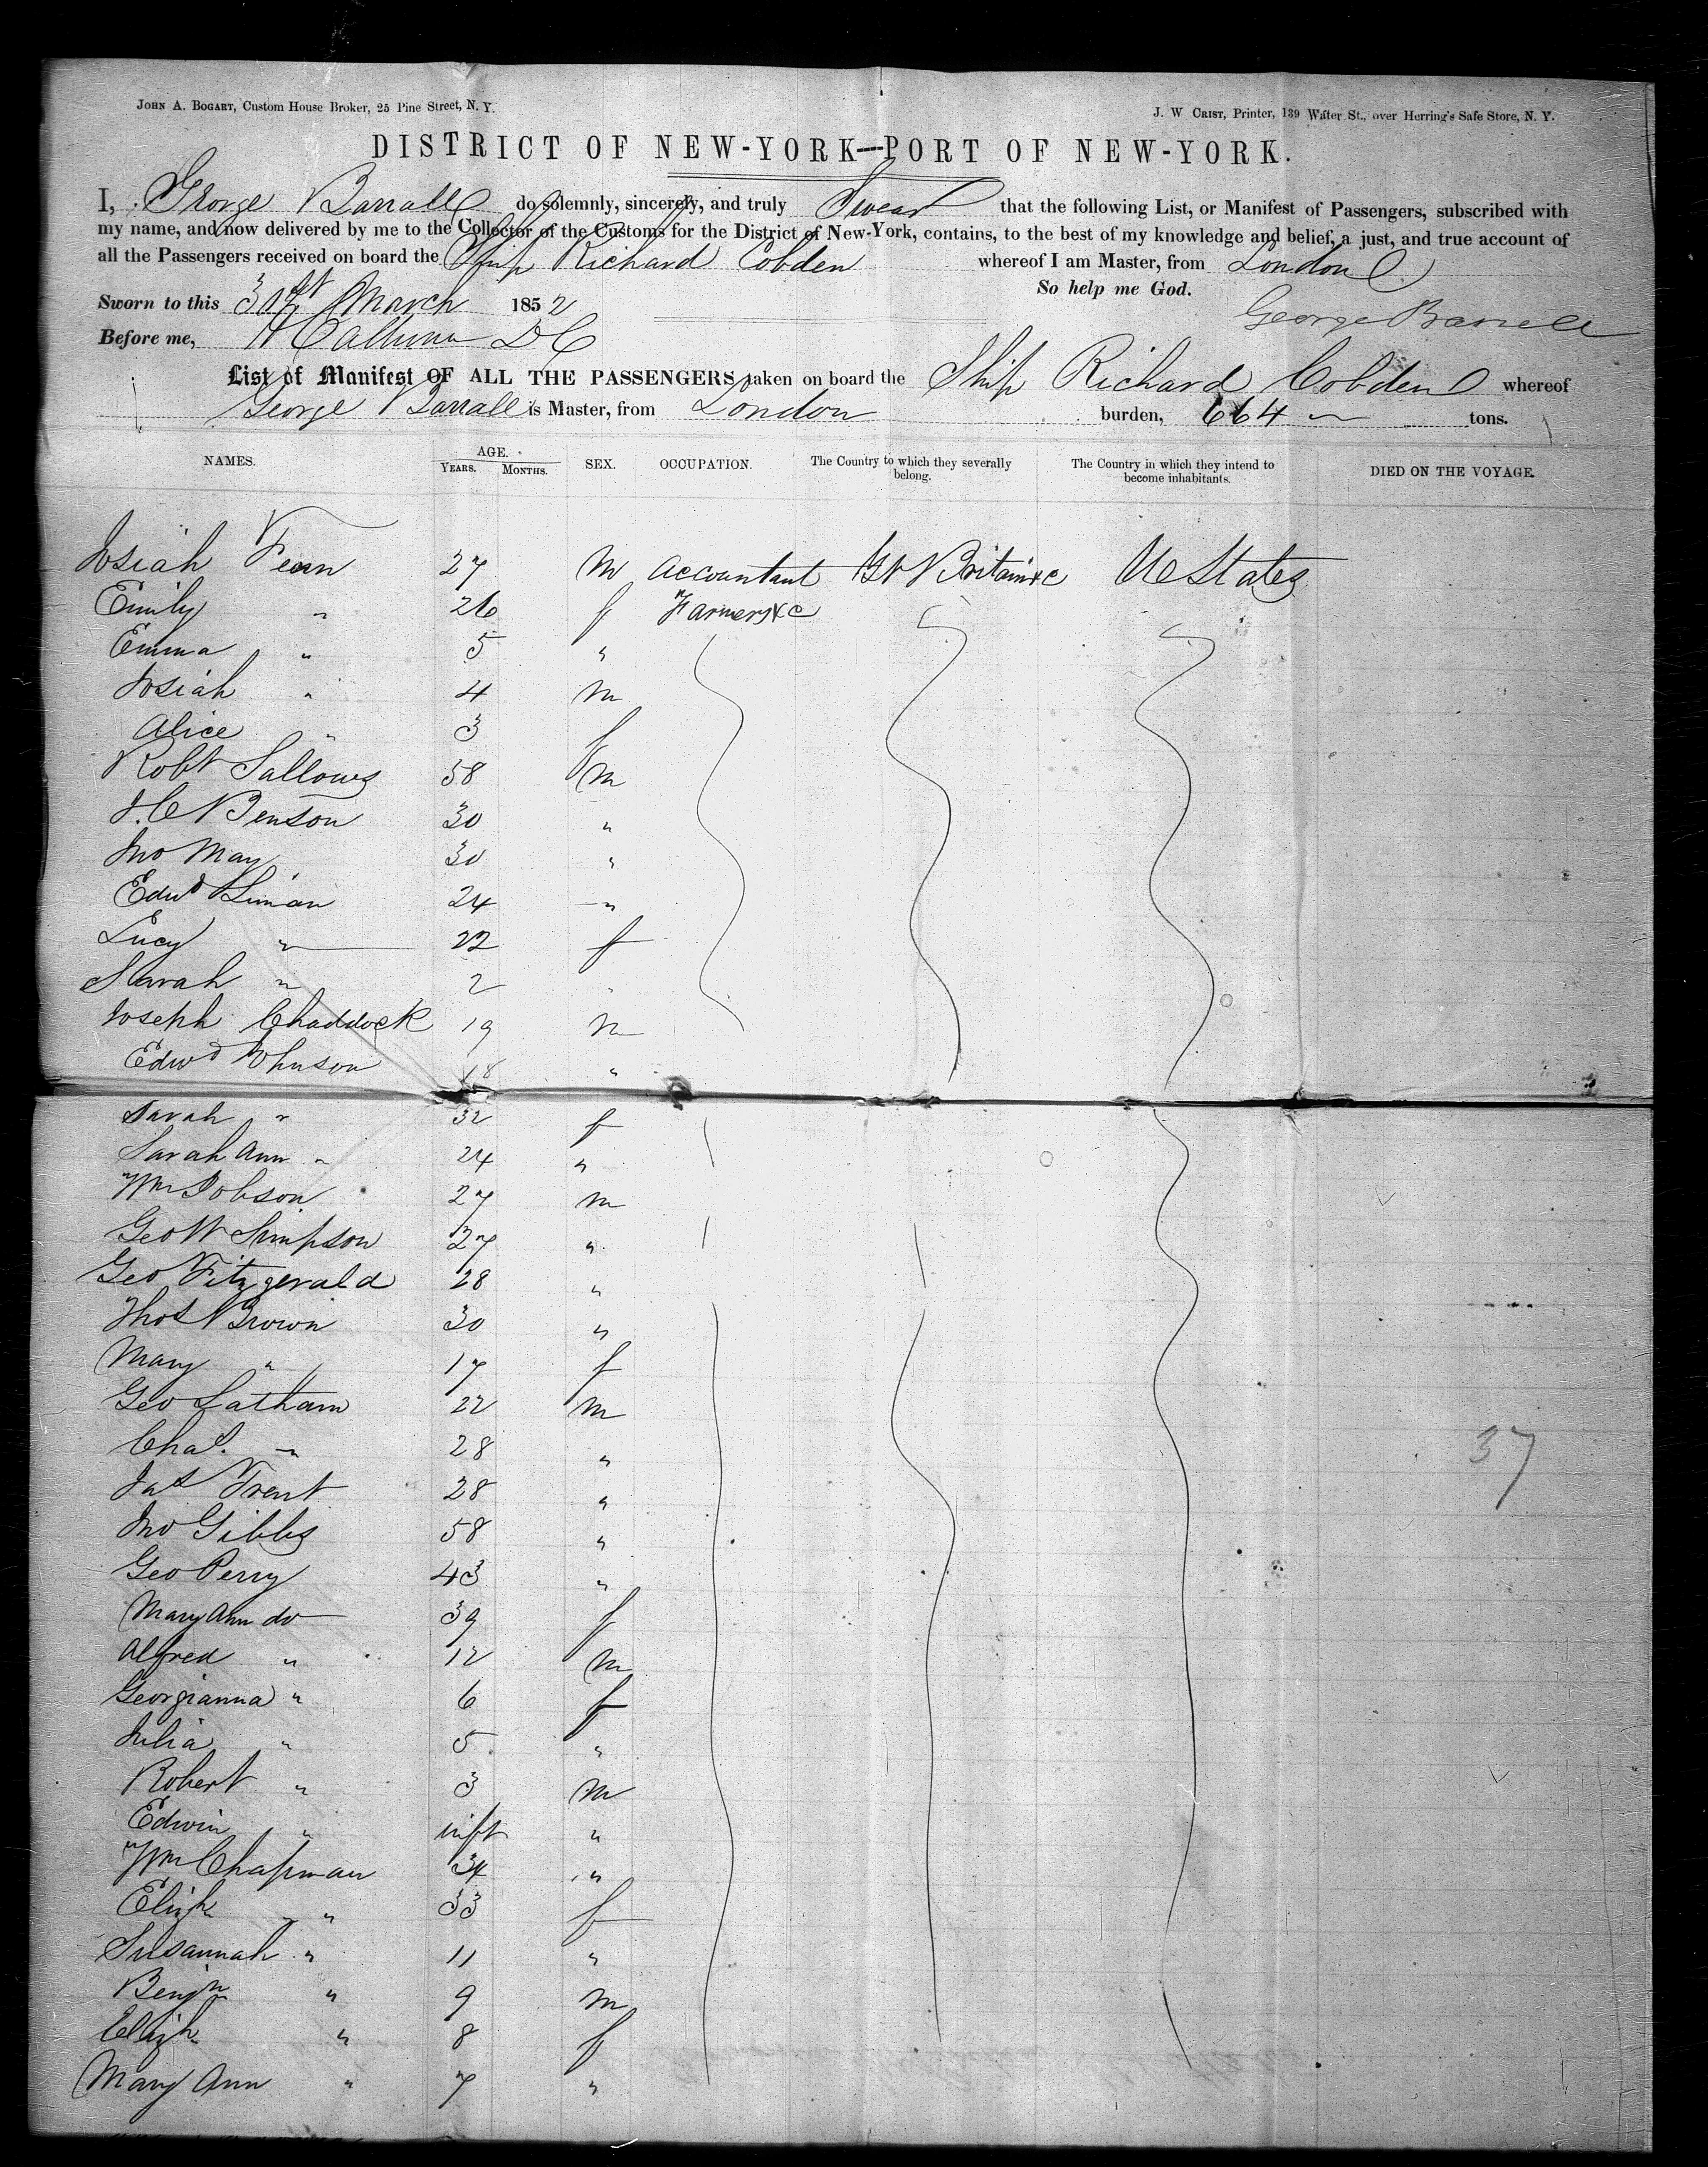 JOHN A. BOGART, Custom House Broker, 25 Pine Street, N. Y.
J. W CRIST, Printer, 139 Water St., over Herring's Safe Store, N. Y.
DISTRICT OF NEW-YORK—PORT OF NEW-YORK.
I, George Barrall do solemnly, sincerely, and truly Swear that the following List, or Manifest of Passengers, subscribed with
my name, and now delivered by me to the Collector of the Customs for the District of New-York, contains, to the best of my knowledge and belief, a just, and true account of
all the Passengers received on board the Ship Richard Cobden whereof I am Master, from London
So help me God.
Sworn to this 31st March 1852
George Barrell
Before me, Calhoun DC
List of Manifest OF ALL THE PASSENGERS taken on board the Ship Richard Cobden whereof
George Barrall is Master, from London burden, 664 tons.
NAMES. AGE. YEARS. MONTHS. SEX. OCCUPATION. The Country to which they severally belong. The Country in which they intend to become inhabitants. DIED ON THE VOYAGE.
Josiah Fenn 27 M Accountant Gt Britain &c U States
Emily " 26 f Farmers &c
Emma " 5 "
Josiah " 4 m
Alice " 3 f
Robt Sallows 58 m
J. C Benson 30 "
Jno May 30 "
Edwd 24 "
Lucy " 22 f
Sarah " 2
Joseph Chaddock 19 m
Edwd Johnson 18 "
Sarah " 32 f
Sarah Ann " 24 "
Wm Jobson 27 m
Geo W Simpson 27 "
Geo Fitzgerald 28 "
Thos Brown 30 "
Mary " 17 f
Geo Latham 22 m
Chas. " 28 "
Jas Trent 28 "
Jno Gibbs 58 "
Geo Perry 43 "
Mary Ann do 39 f
Alfred " 12 m
Georgianna " 6 f
Julia " 5 "
Robert " 3 m
Edwin " inft "
Wm Chapman 34 "
Elizh " 33 f
Susannah " 11 "
Benjn " 9 m
Elizh " 8 f
Mary Ann " 7 "
37